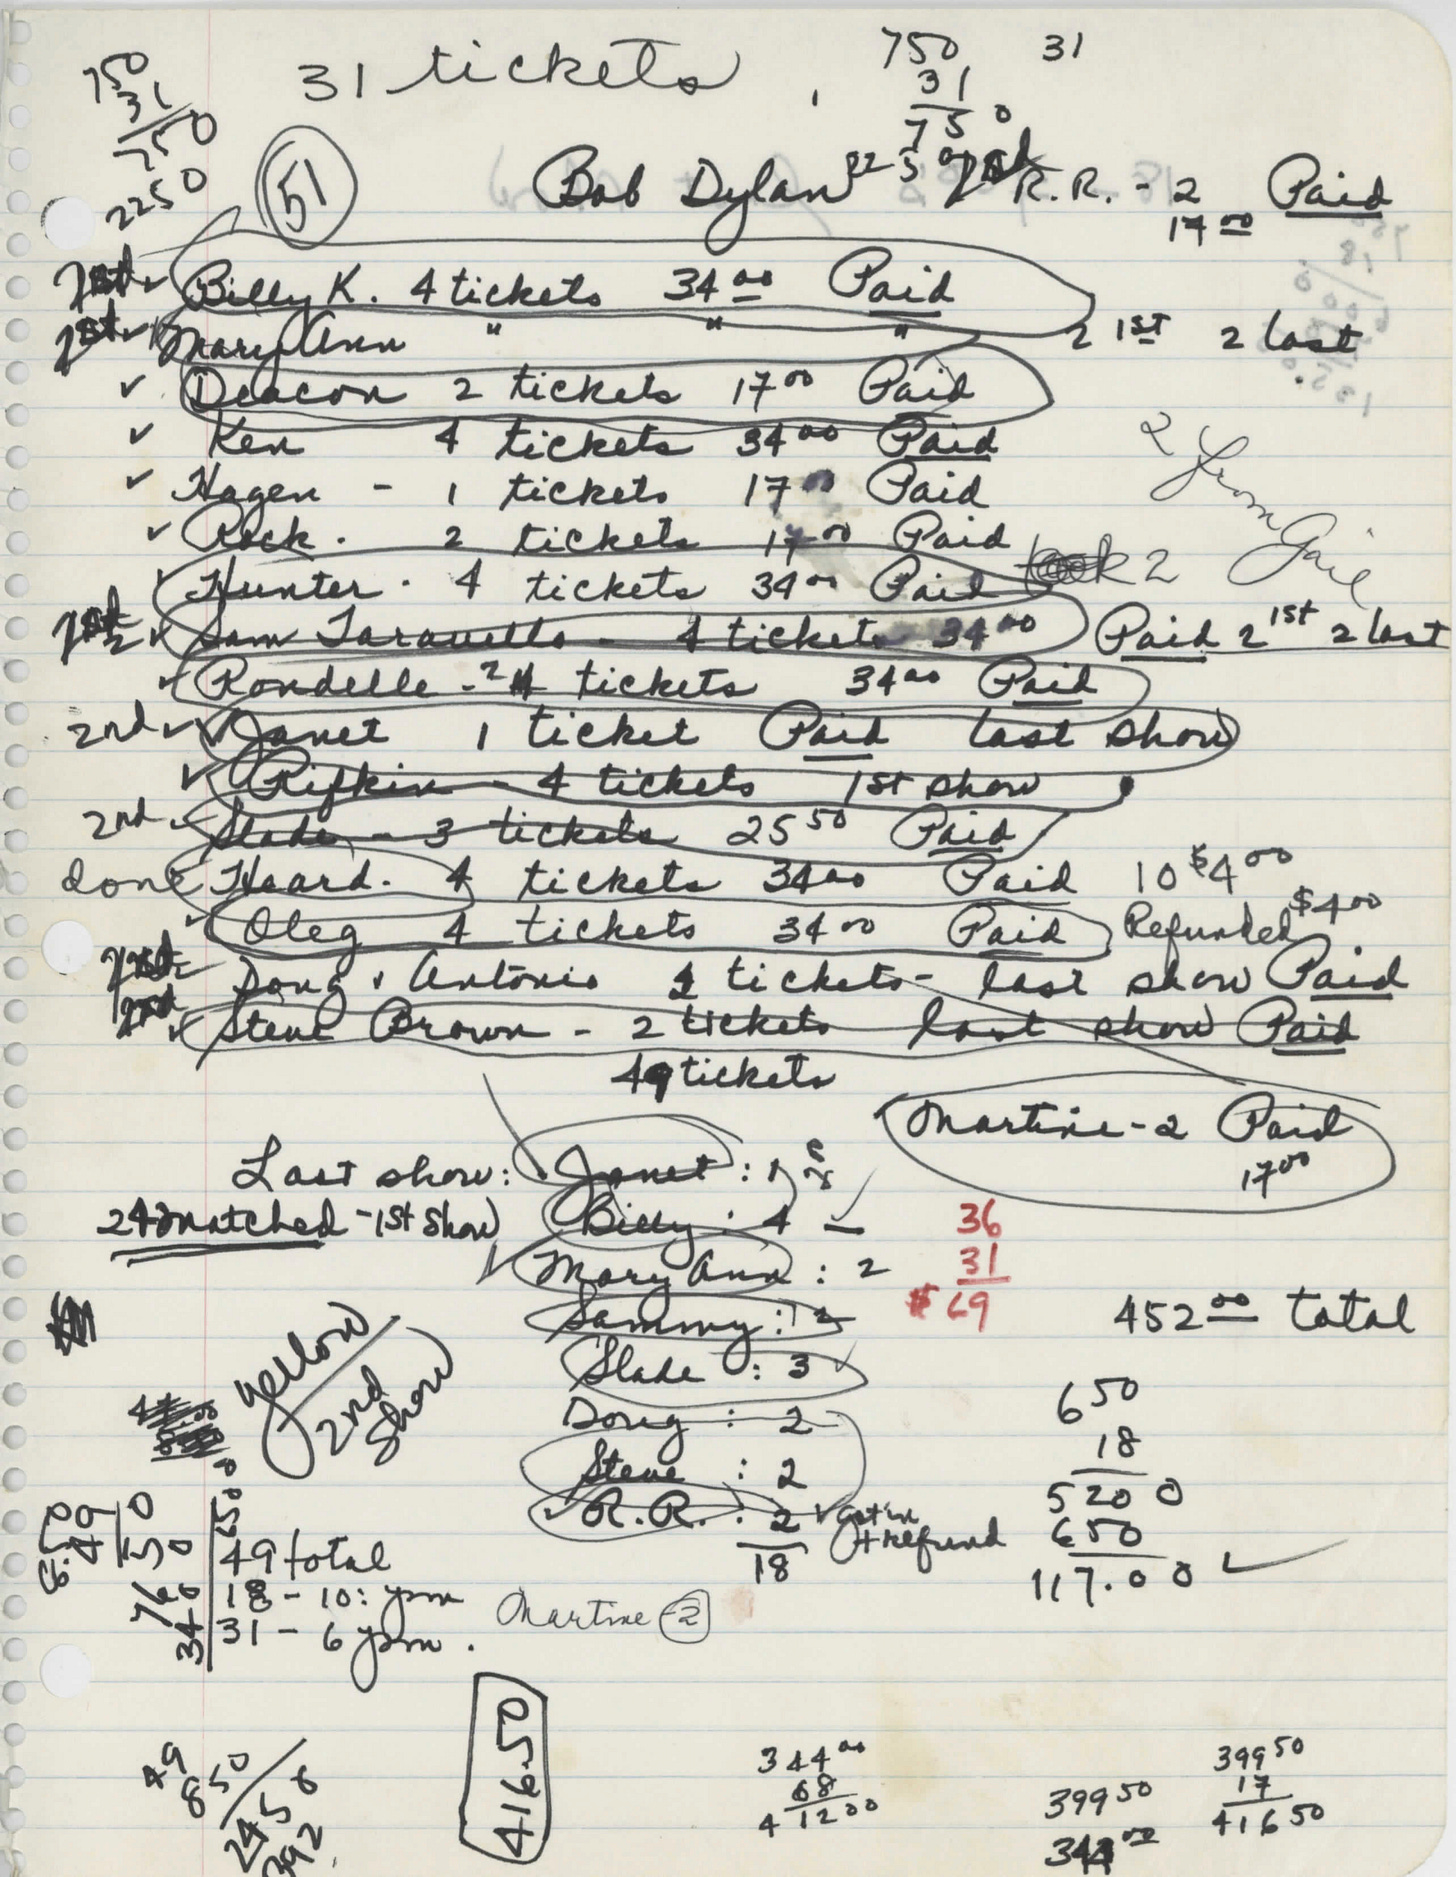 750 31 tickets 750 31
31 31
750 750
2250
51 Bob Dylan R.R. - 2 Paid
17 00
Billy K. 4 tickets 34 00 Paid
Mary Ann " " " 2 1st 2 last
✓ Deacon 2 tickets 17 00 Paid
✓ Ken 4 tickets 34 00 Paid
✓ Hagen - 1 tickets 17 00 Paid
✓ Rock. 2 tickets 17 00 Paid
2 From Gail
Hunter - 4 tickets 34 00 Paid took 2
Sam Taravella - 4 tickets 34 00 Paid 2 1st 2 last
✓ Rondelle - 2 tickets 34 00 Paid
2nd ✓ Janet 1 ticket Paid last show
✓ Rifkin - 4 tickets 1st show
2nd Slade - 3 tickets 25 50 Paid
done Heard. 4 tickets 34 00 Paid 10 $4 00
Oleg 4 tickets 34 00 Paid Refunded $4 00
Doug & Antonio tickets - last show Paid
Steve Brown - 2 tickets last show Paid
49 tickets
Martine - 2 Paid
17 00
Last show: Janet : 1
24 matched - 1st show Billy : 4
Mary Ann : 2
Sammy :
Slade : 3
Doug : 2
Steve : 2
R.R. : 2 got in + refund
18
36
31
$ 69
452 00 total
yellow
2nd show
6 50
18
520 0
650
117.00 ✓
8.50
49
7650
340
49 total
18 - 10: pm
31 - 6 pm.
Martine - 2
416.50
49
8 50
245 0
392
344 00
68
412 00
399 50
344 00
399 50
17
416 50